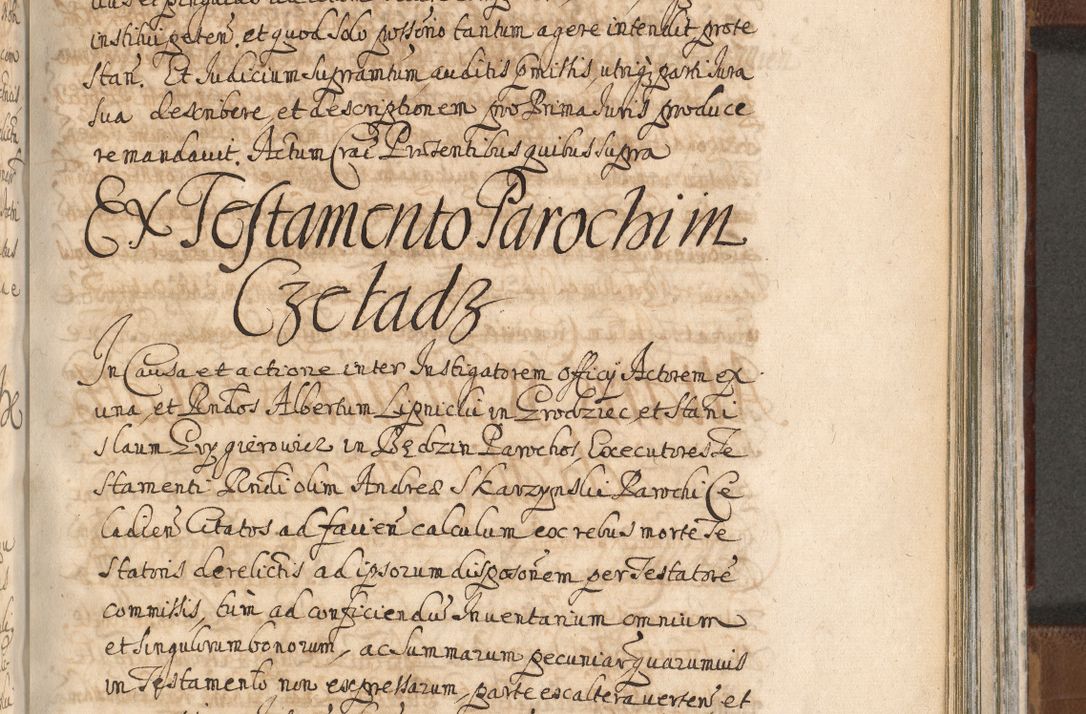 institui peteñ. et quod solo possono tantum agere intendit prote
stañ. Et Judicium supramtum auditis pmissis, utriqȝ parti Jura
sua describere, et descriptionem pro Prima Juris produce
re mandavit. Actum Crac Presentibus quibus supra
Ex Testamento Parochi in
Czeladz
In Causa et actione inter Instigatorem Officÿ Actorem ex
una, et Rndos Albertum Lipnicki in Grodziec, et Stani
slaum Grzgierowicz in Będzin Parochos, Executores Te
stamenti Rndi olim Andreæ Skarzynski Parochi Ce
ladien Citatos ad facien calculum ex rebus morte Te
statoris derelictis ad ipsorum disposonem per Testatore
commissis, tum ad conficiendu Inventarium omnium
et singulorum bonorum, ac summarum pecuniar quarumvis
in Testamento non expressarum, parte ex altera verten et